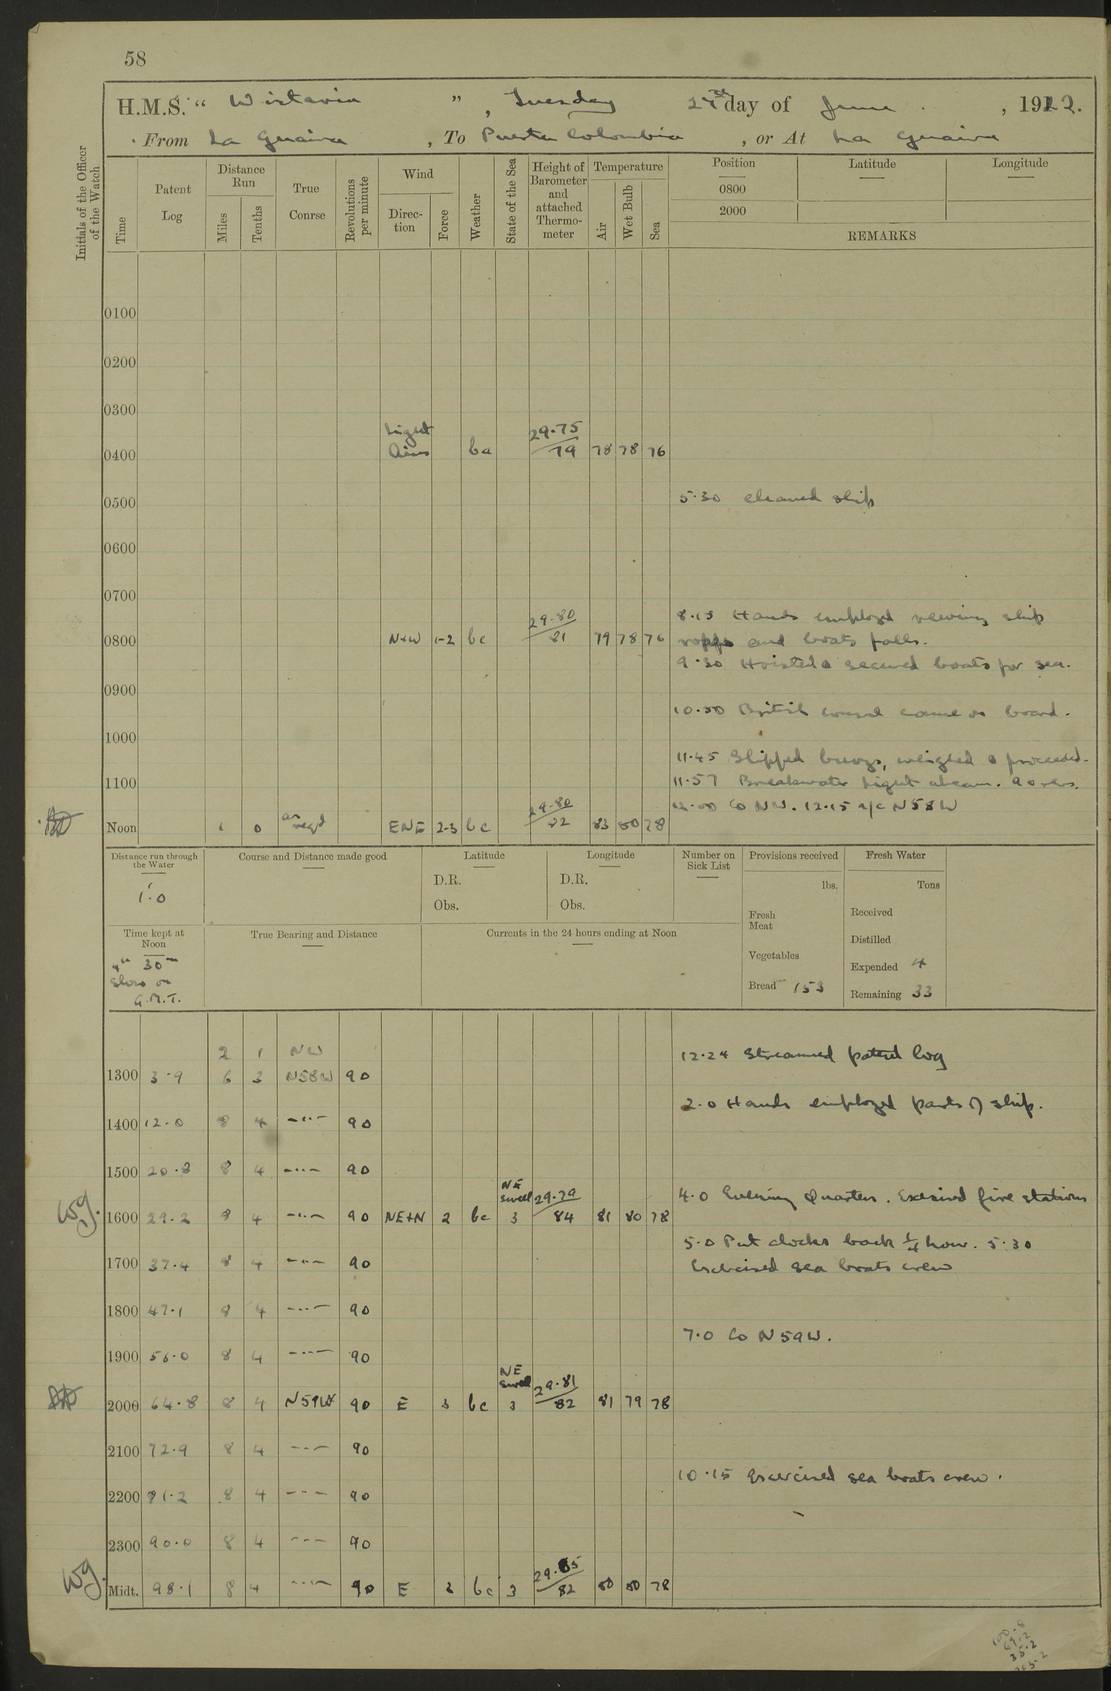 58
H.M.S. "Wistaria", Tuesday 27th day of June, 1922.
From La Guaira, To Puerto Colombia, or At La Guaira
Initials of the Officer of the Watch.
Time
Patent Log
Distance Run
Miles
Tenths
True Course
Revolutions per minute
Wind
Direction
Force
Weather
State of the Sea
Height of Barometer and attached Thermometer
Temperature
Air
Wet Bulb
Sea
Position
Latitude
Longitude
0800
2000
REMARKS
0100
0200
0300
0400 Light Airs 29.75 79 78 78 76
0500 5.30 Cleaned ship
0600
0700
8.15 Hands employed reeving ship
0800 N+W 1-2 bc 29.80 81 79 78 76
and boats falls.
9.30 Hoisted & secured boats for sea.
0900
10.00 British Consul came on board.
1000
11.45 Slipped buoys, weighed & proceeded.
1100 11.57 Breakwater Light abeam. 90 revs.
12.00 Co NW. 12.15 a/c N58W
Noon 1 0 as reqd ENE 2-3 bc 29.80 82 83 80 78
Distance run through the Water
1.0
Course and Distance made good
Latitude
D.R.
Obs.
Longitude
D.R.
Obs.
Number on Sick List
Provisions received
lbs.
Fresh Meat
Vegetables
Bread 153
Fresh Water
Tons
Received
Distilled
Expended 4
Remaining 33
Time kept at Noon
4h 30m
slow on
G.M.T.
True Bearing and Distance
Currents in the 24 hours ending at Noon
2 1 NW 12.24 Streamed patent log
1300 3.9 6 3 N58W 90
2.0 Hands employed parts of ship.
1400 12.0 8 4 -..- 90
1500 20.8 8 4 -...- 90
4.0 Evening Quarters. Exercised fire stations
Wg. 1600 29.2 8 4 -..- 90 NE+N 2 bc NE swell 3 29.79 84 81 80 78
5.0 Put clocks back ¼ hour. 5.30
1700 37.4 8 4 -..- 90 Exercised sea boats crew
1800 47.1 8 4 -...- 90
7.0 Co N59W.
1900 56.0 8 4 -...- 90
2000 64.8 8 4 N59W 90 E 3 bc NE swell 3 29.81 82 81 79 78
2100 72.9 8 4 -..- 90
10.15 Exercised sea boats crew.
2200 81.2 8 4 --- 90
2300 90.0 8 4 --- 90
Wg. Midt. 98.1 8 4 -..- 90 E 2 bc 3 29.85 82 80 80 78